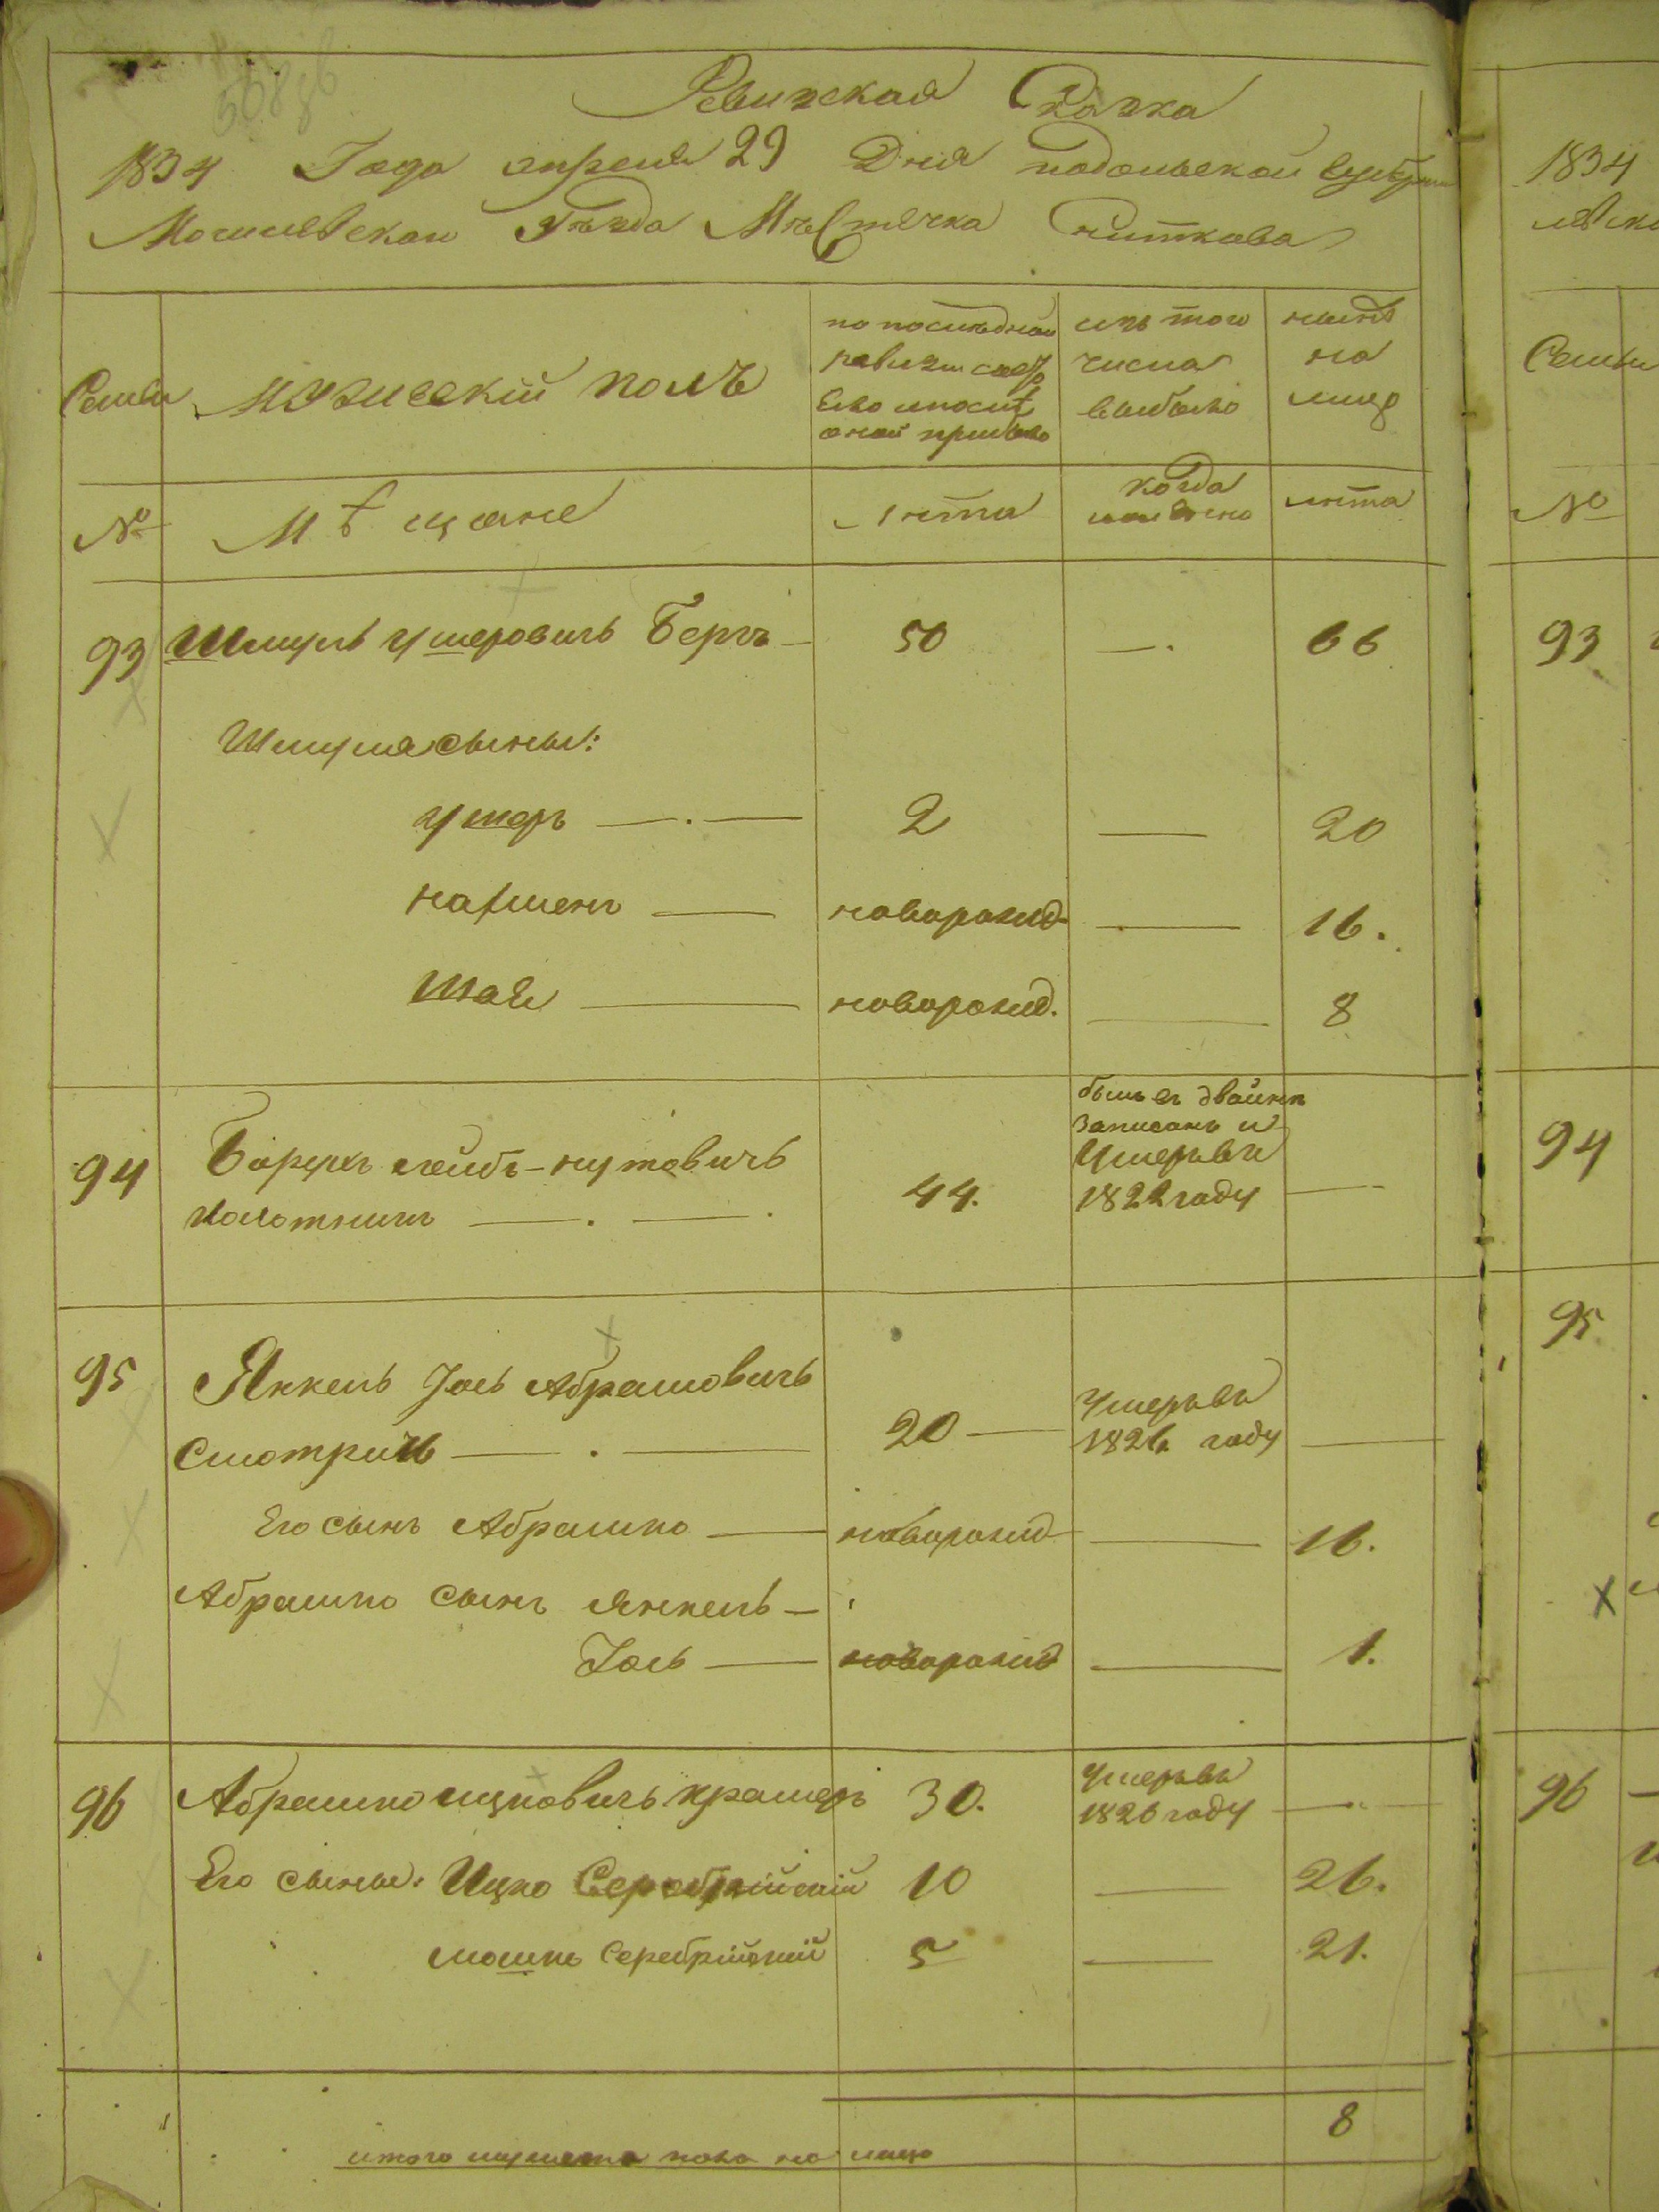 508 зв
Ревизская Сказка
1834 Года апреля 29 Дня подольской Губернии
Могилевскаи Уезда Местечка Сниткова
Семьи
мужескій полъ
по последней ревизии состояло и после оной прибыло
изъ того числа выбыло
ныне на лицо
№
Мѣщане
лета
когда именно
лета
93 Шмуль Ушеровичъ Бергъ 50 —. 66
Шмуля сыны:
Ушеръ —.— 2 — 20
Нахменъ — новорожд — 16.
Шая — новорожд. — 8
94 Борухъ лейбъ-нутовичъ
Колотникъ —. —. 44.
былъ въ двойне
записанъ и
Умеръ въ
1822 году —
95 Янкель Іось Абрамовичъ
Смотричъ —.— 20 —
Умеръ въ
1826 году —
Его сынъ Абрашко — новорожд — 16.
Абрашко сынъ Янкель —
Іось — новорожд — 1.
96 Абрашко ицковичъ крамеръ 30.
Умеръ въ
1826 году —
Его сыны: Ицко Серебрійскій 10 — 26.
мошко Серебрійскій 5 — 21.
8
итого мужеска пола на лицо
1834
Семьи
№
93
94
95
96